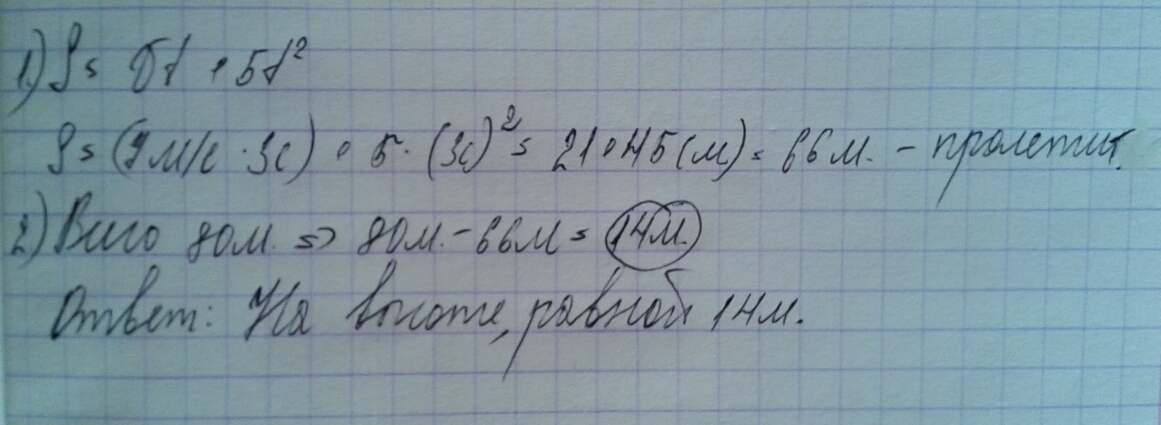 1) S = υt + 5t²
S = (7м/с · 3с) + 5 · (3с)² = 21 + 45(м) = 66м. - пролетит.
2) Всего 80м. => 80м. - 66м = 14м.
Ответ: На высоте, равной 14м.